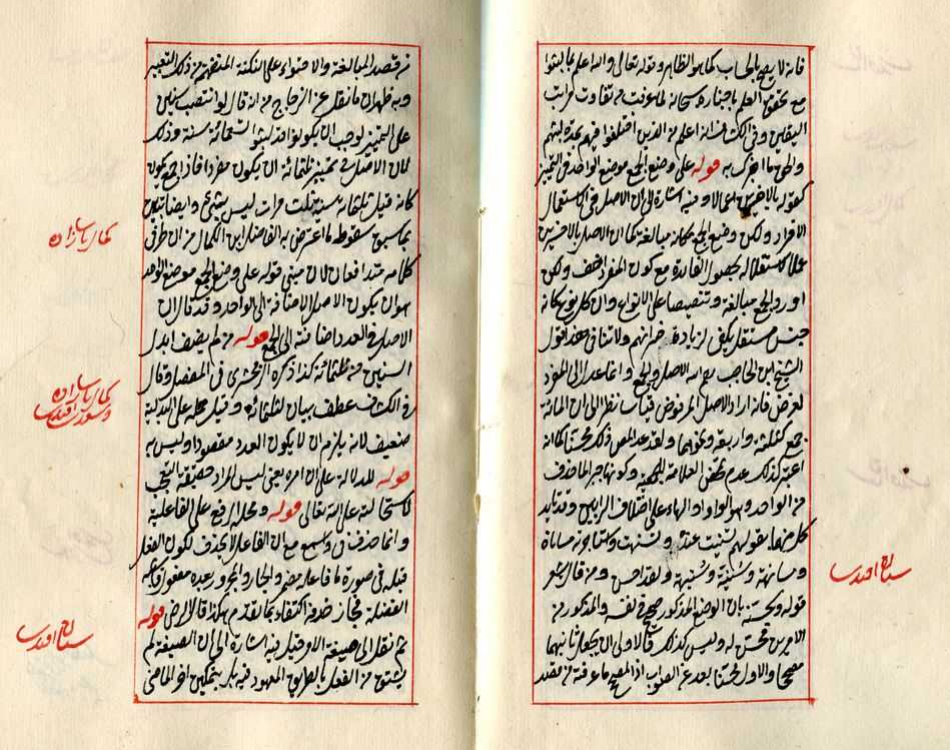 فانه لا يصح بالحساب كما هو الظاهر وقوله تعالى والله اعلم بما لبثوا
مع تحقق العلم باخباره سبحانه لما عرفت من تفاوت مراتب
اليقين وفي الكشاف انه اعلم من الذين اختلفوا فيهم بمدة لبثهم
والحق ما اخبرك به قوله على وضع الجمع موضع الواحد في التمييز
كقوله بالاخسرين اعمالا وفيه اشارة الى ان الاصل في الاستعمال
الافراد ولكن وضع الجمع مكانه مبالغة كما ان الاصل بالاخسرين
عملا لاستقلاله بحصول الفائدة مع كون المفرد اخف ولكن
اورد الجمع مبالغة وتنصيصا على الانواع وان كل نوع كانه
جنس مستقل يكفي لزيادة خسرانهم ولا ينافي هذا قول
الشيخ ابن الحاجب بعد الاصل الجمع وانما عدل الى المفرد
لغرض فانه اراد الاصل المرفوض قياسا نظرا الى ان المائة
جمع كثلثة واربعة ونحوهما ولقد عد المص ذلك محسنا كما انه
اعتبر كذلك عدم تمحض العلامة للجمعية وكونها جبرا لما حذف
من الواحد وهو الواو او الهاء على اختلاف الرأيين وقد تأيد
كل منهما بقولهم تسنيت عنده وتسنهت وكتابته مساناة
ومسانهة وسنية وسنيهة ولقد احسن ومن قال
قوله ويحسنه بان الوضع المذكور صحيح في نفسه والمذكور من
الامرين محسن له وليس كذلك فالاولى ان يجعل ثانيهما
مصححا والاول محسنا بعد عن الصواب اذ المصحح ما عرفته من
سنان افندى
من قصد المبالغة والاحتواء على النكتة المتضمنة من ذلك التعبير
وبه ظهر ان ما نقل عن الزجاج من انه قال لو انتصب سنين
على التمييز لوجب ان يكونوا قد لبثوا تسعمائة سنة وذلك
لان الاصل في تمييز ثلثمائة ان يكون مفردا فاذا جمع يكون
كانه قيل ثلثمائة سنة ثلث مرات ليس بشئ وايضا تبين
بما سبق سقوط ما اعترض به الفاضل ابن الكمال من ان طرفي
كلامه متدافعان لان مبنى قوله على وضع الجمع موضع الواحد
هو ان يكون الاصل الاضافة الى الواحد وقد قال ان
الاصل في العدد اضافته الى الجمع قوله من لم يضف ابدل
السنين من ثلثمائة كذا ذكره الزمخشرى في المفصل وقال
في الكشاف عطف بيان لثلثمائة وقيل حمله على البدلية
ضعيف لانه يلزم ان لا يكون العدد مقصودا وليس به
قوله للدلالة على ان امره يعني ليس المراد حقيقة التعجب
لاستحالته على الله تعالى قوله ومحله الرفع على الفاعلية
وانما حذف من واسمع مع ان الفاعل لا يحذف لكون الفعل
قبله في صورة ما فاعله مضمر والجار والمجرور بعده مفعول
الفضلة فجاز حذفه اكتفاء بما تقدم هكذا قال الرضى قوله
ثم نقل الى صيغة الامر قيل فيه اشارة الى ان الصيغة لم
يشتق من الفعل بالطريق المعهود فيه بل بتسكين آخر الماضي
كمال باشا زاده
كمال باشا زاده
سنان افندى